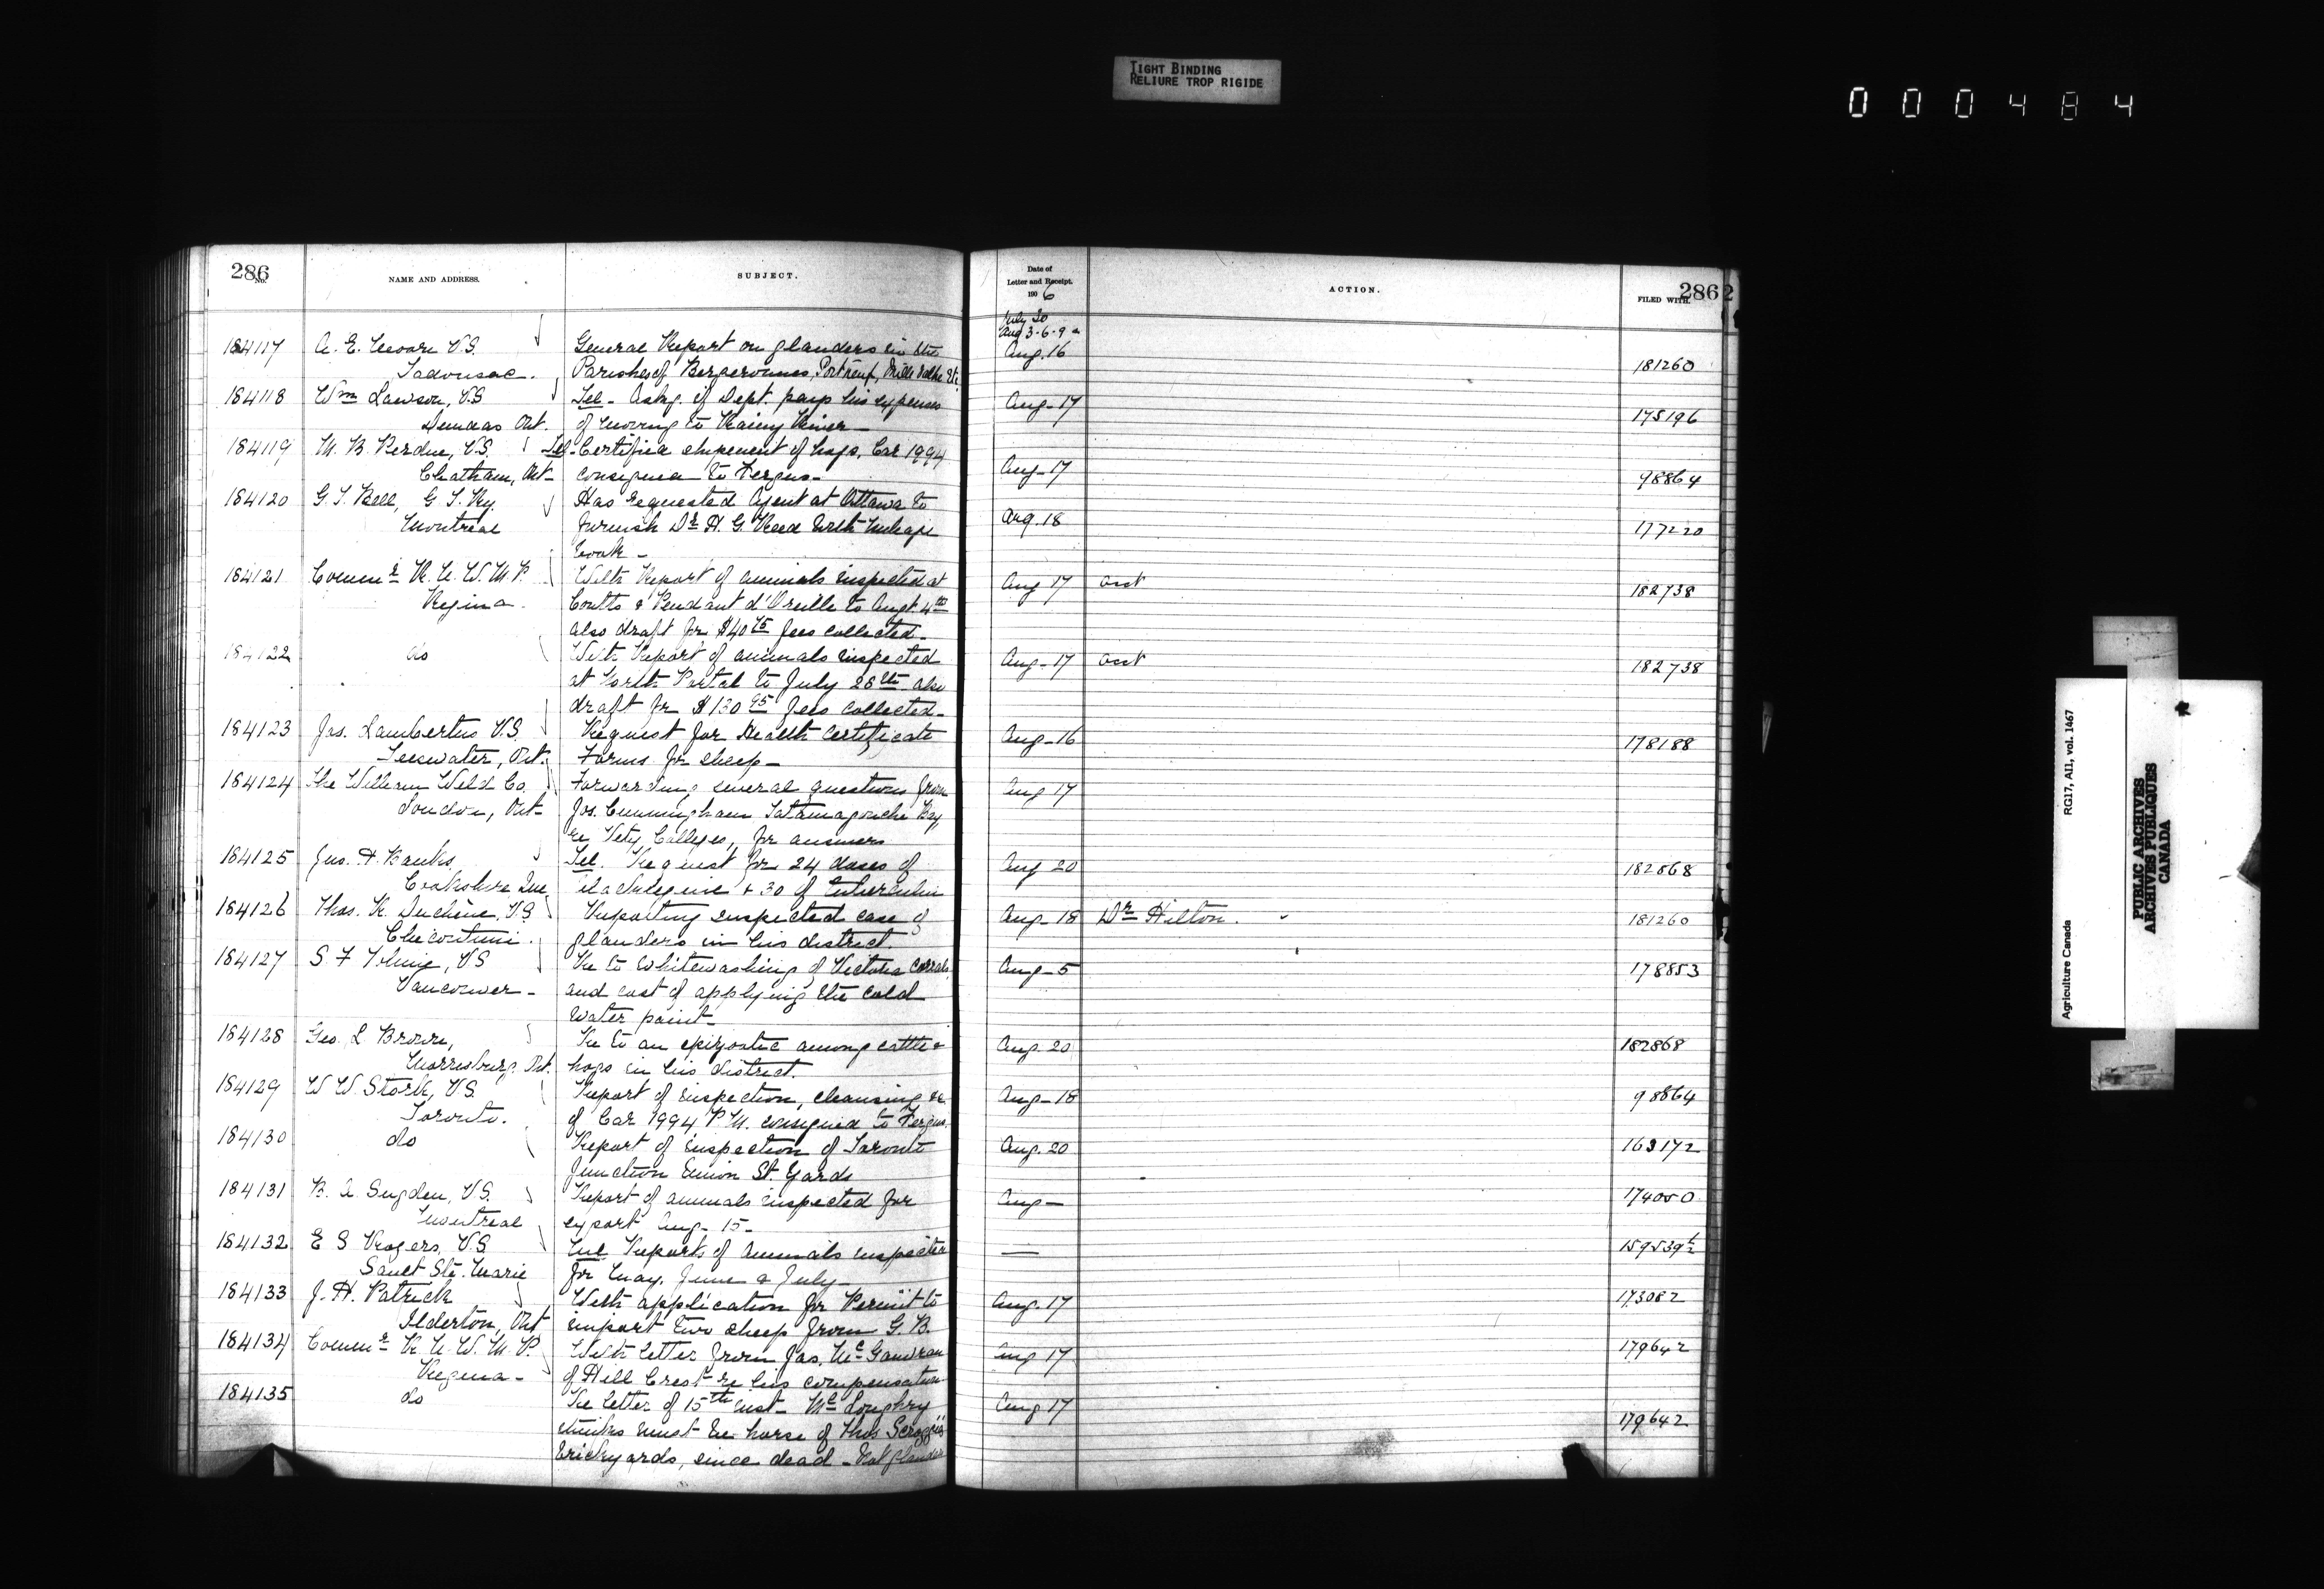 TIGHT BINDING
RELIURE TROP RIGIDE
000484
286
No. NAME AND ADDRESS. SUBJECT.
Date of
Letter and Receipt.
1906
ACTION. FILED WITH. 286
July 30
Aug 3-6-9 &
184117 A. E. Moore V.S. General Report on glanders in the Aug. 16 181260
Tadousac. Parishes of Bergeronnes, Portneuf, Mille Vache Etc
184118 Wm Lawson, V.S Tel - Askg. if Dept. pays his expenses Aug-17 175196
Dundas Ont. of moving to Rainy River -
184119 M. B. Perdue, V.S. Tel- Certifies shipment of hogs, Car 1994 Aug-17 98864
Chatham, Ont- consigned to Fergus-
184120 G. T. Bell, G. T. Ry. Has requested Agent at Ottawa to Aug. 18 177220
Montreal furnish Dr H. G. Reed with mileage
book -
184121 Commr R. N. W. M. P. With Report of animals inspected at Aug 17 acct 182738
Regina. Coutts & Pendant d'Oreille to Augt. 4th
also draft for $40 75 fees collected-
184122 do With Report of animals inspected Aug-17 acct 182738
at North Portal to July 28th also
draft for $130 95 fees collected-
184123 Jas. Lambertus V.S. Request for Health Certificate Aug-16 178188
Teeswater, Ont. Forms for sheep-
184124 The William Weld Co. Forwarding several questions from Aug 17
London, Ont- Jos. Cunningham Tatamagouche Bay,
re Vety Colleges, for answers
184125 Jas. H. Banks, Tel. Request for 24 doses of Aug 20 182868
Cookshire Que Blacklegine & 30 of tuberculin
184126 Thos. R. Duchène, V.S Reporting suspected case of Aug-18 Dr Hilton. 181260
Chicoutimi. glanders in his district.
184127 S. F. Tolmie, V.S Re to whitewashing of Victoria corrals Aug-5 178853
Vancouver- and cost of applying the cold
water paint-
184128 Geo. L Brown, Re to an epizootic among cattle & Aug. 20 182868
Morrisburg. Ont. hogs in his district.
184129 W W Stork, V.S. Report of inspection, cleansing &c Aug-18 98864
Toronto. of Car 1994 P.M. consigned to Fergus.
184130 do Report of inspection of Toronto Aug. 20 163172
Junction Union St. Yards
184131 B. A Sugden, V.S. Report of animals inspected for Aug- 174050
Montreal export Aug- 15-
184132 E S Rogers, V.S. Encl Reports of animals inspected — 159539½
Sault Ste. Marie for May, June & July-
184133 J. H. Patrick With application for Permit to Aug. 17 173082
Ilderton, Ont import two sheep from G. B.
184134 Commr R. N. W. M. P. With letter from Jas. Mc Aug 17 179642
Regina- of Hill Crest re his compensation
184135 do Re letter of 15th inst- Mc Loughry Aug 17 179642
thinks must be horse of Thos
brickyards, since dead - Not glanders
Agriculture Canada RG17, AII, vol. 1467
PUBLIC ARCHIVES
ARCHIVES PUBLIQUES
CANADA